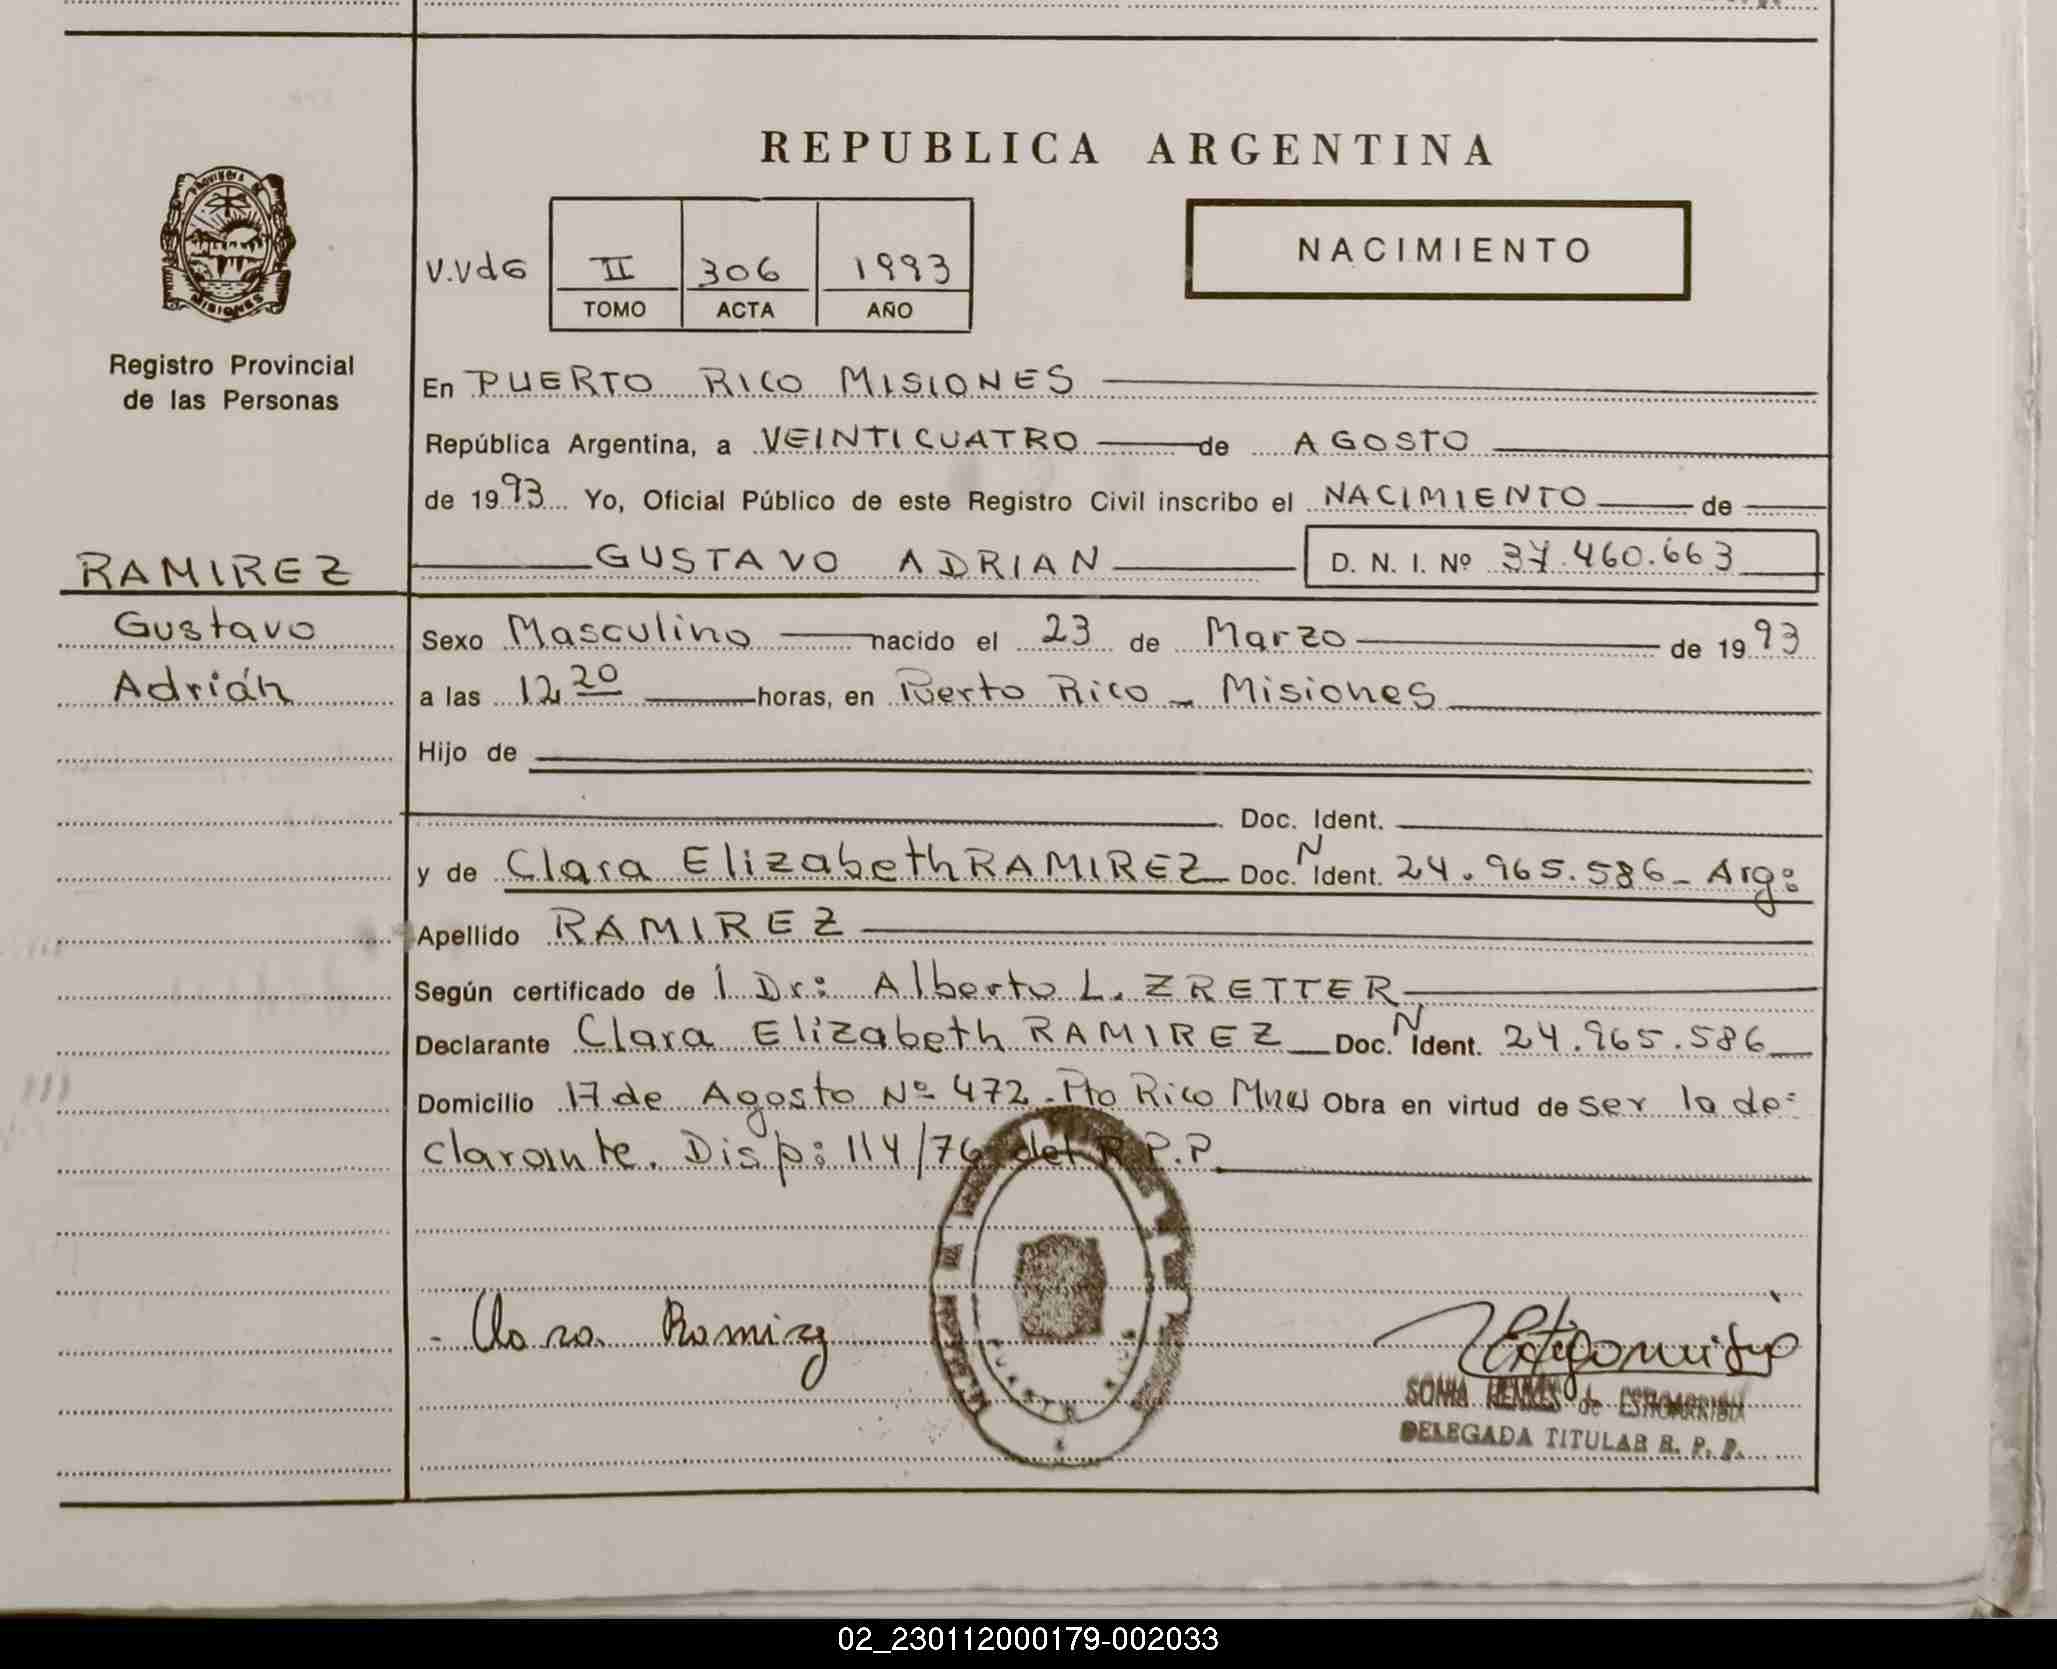 REPUBLICA ARGENTINA
PROVINCIA DE
MISIONES
Registro Provincial
de las Personas
V.VdG
II 306 1993
TOMO ACTA AÑO
NACIMIENTO
En PUERTO RICO MISIONES
República Argentina, a VEINTICUATRO de AGOSTO
de 1993 Yo, Oficial Público de este Registro Civil inscribo el NACIMIENTO de
GUSTAVO ADRIAN D. N. I. Nº 37.460.663
RAMIREZ
Gustavo
Adrián
Sexo Masculino nacido el 23 de Marzo de 1993
a las 12 20 horas, en Puerto Rico - Misiones
Hijo de
Doc. Ident.
y de Clara Elizabeth RAMIREZ Doc. N Ident. 24.965.586 - Arg:
Apellido RAMIREZ
Según certificado de l Dr: Alberto L. ZRETTER
Declarante Clara Elizabeth RAMIREZ Doc. N Ident. 24.965.586
Domicilio 17 de Agosto Nº 472 - Pto Rico Mnes Obra en virtud de ser la de:
clarante. Disp: 114/76 del R.P.P.
Clara Ramirez
SONIA de
DELEGADA TITULAR R. P. P.
02_230112000179-002033